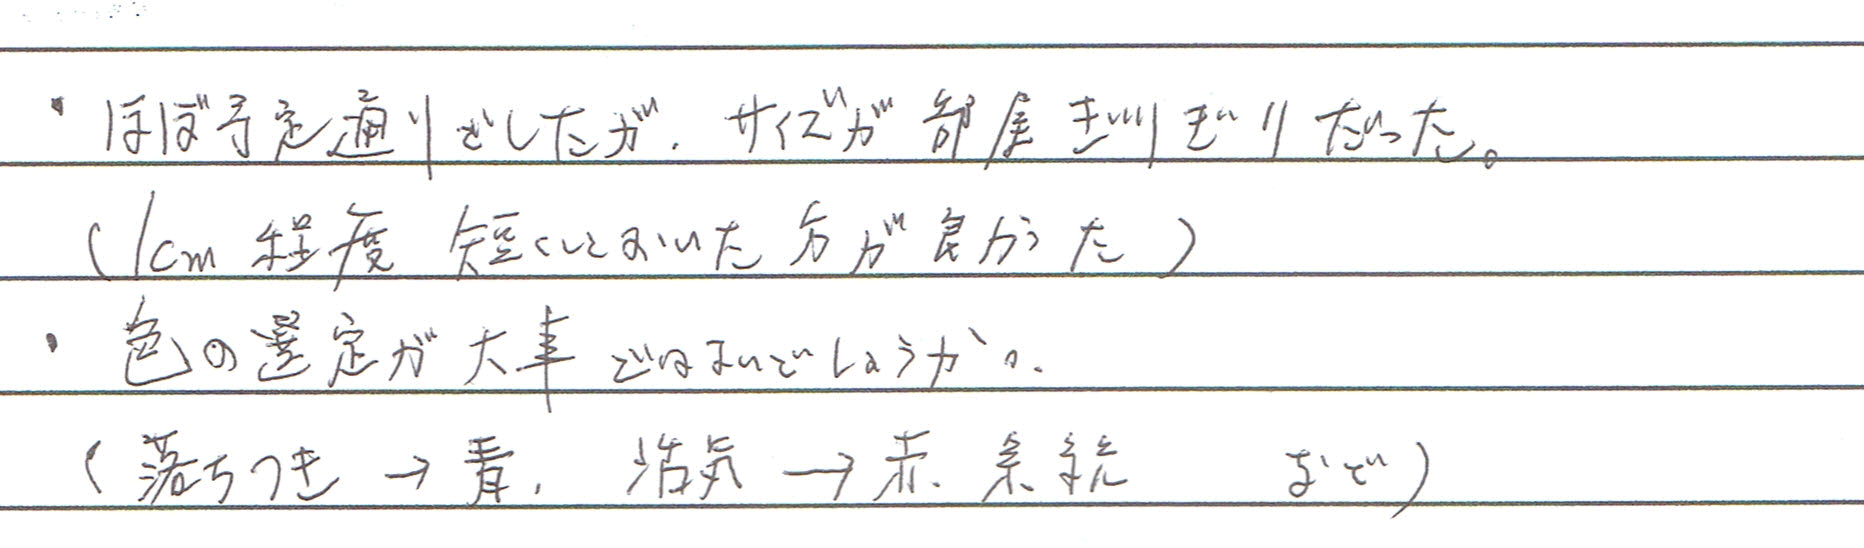 ・ほぼ予定通りでしたが、サイズが部屋ぎりぎりだった。
(1cm程度 短くしておいた方が良かった)
・色の選定が大事ではないでしょうか。
(落ちつき→青、活気→赤、系統 など)